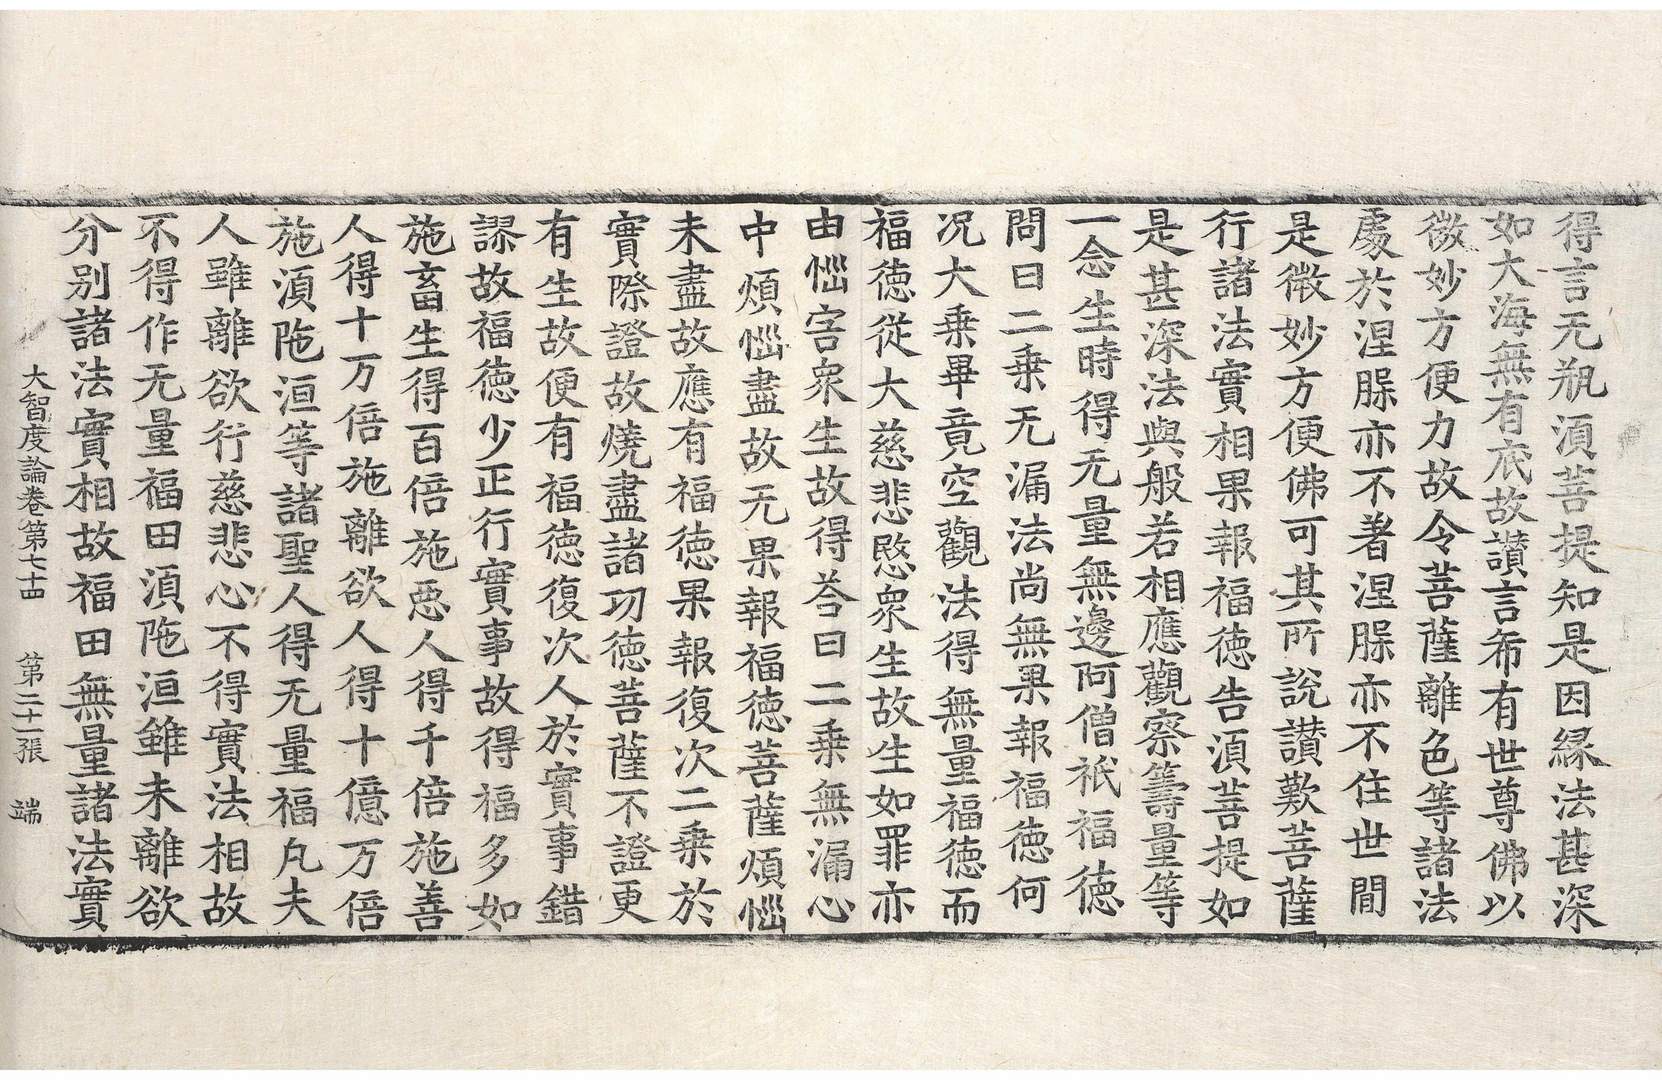 得言无瓶湏菩提知是因縁法甚深
如大海無有底故讃言希有世尊佛以
微妙方便力故令菩薩離色等諸法
處於涅脲亦不著涅脲亦不住世間
是微妙方便佛可其所說讃歎菩薩
行諸法實相果報福徳告湏菩提如
是甚深法與般若相應觀察籌量等
一念生時得无量無邊阿僧祇福徳
問曰二乗无漏法尚無果報福徳何
况大乗畢竟空觀法得無量福徳而
福徳從大慈悲愍衆生故生如罪亦
由惱害衆生故得荅曰二乗無漏心
中煩惱盡故无果報福徳菩薩煩惱
未盡故應有福徳果報復次二乗於
實際證故燒盡諸功徳菩薩不證更
有生故便有福徳復次人於實事錯
謬故福徳少正行實事故得福多如
施畜生得百倍施惡人得千倍施善
人得十万倍施離欲人得十億万倍
施湏陁洹等諸聖人得无量福凡夫
人雖離欲行慈悲心不得實法相故
不得作无量福田湏陁洹雖未離欲
分別諸法實相故福田無量諸法實
大智度論卷第七十四 第二十一張 端